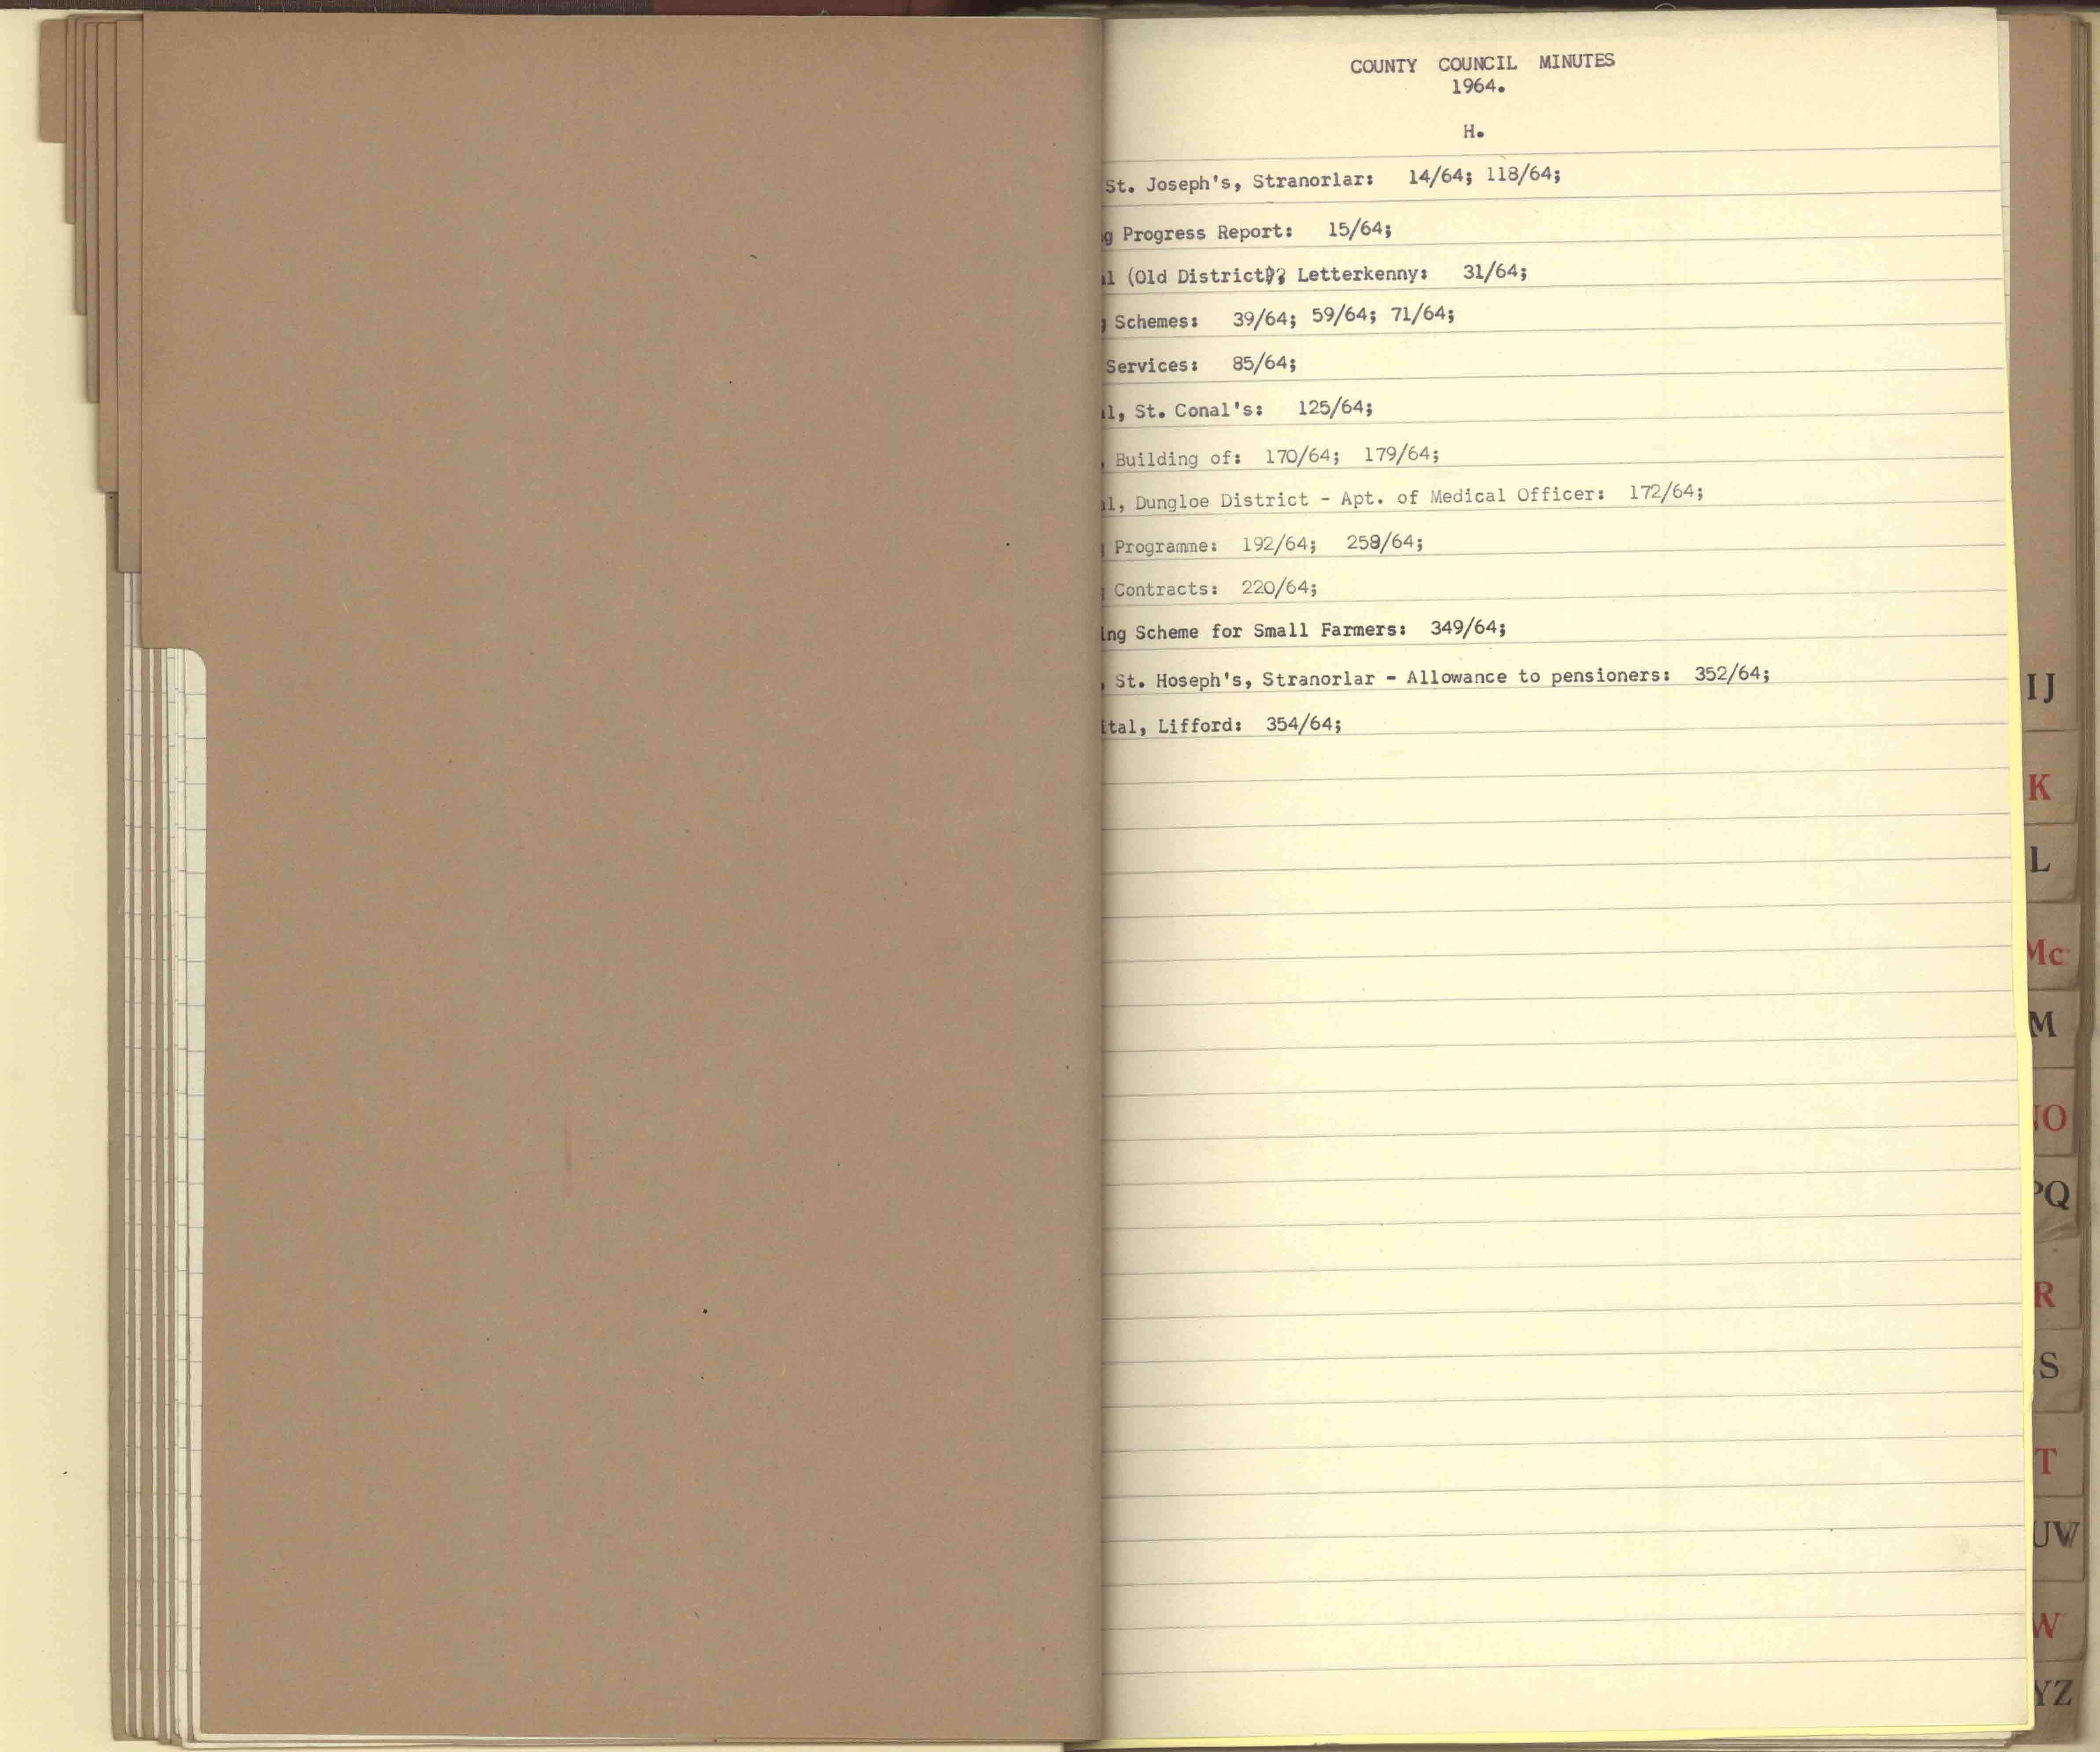 COUNTY COUNCIL MINUTES
1964.
H.
St. Joseph's, Stranorlar: 14/64; 118/64;
g Progress Report: 15/64;
l (Old District); Letterkenny: 31/64;
Schemes: 39/64; 59/64; 71/64;
Services: 85/64;
l, St. Conal's: 125/64;
, Building of: 170/64; 179/64;
l, Dungloe District - Apt. of Medical Officer: 172/64;
Programme: 192/64; 258/64;
Contracts: 220/64;
ing Scheme for Small Farmers: 349/64;
, St. Hoseph's, Stranorlar - Allowance to pensioners: 352/64;
ital, Lifford: 354/64;
IJ
K
L
Mc
M
NO
PQ
R
S
T
UW
W
YZ